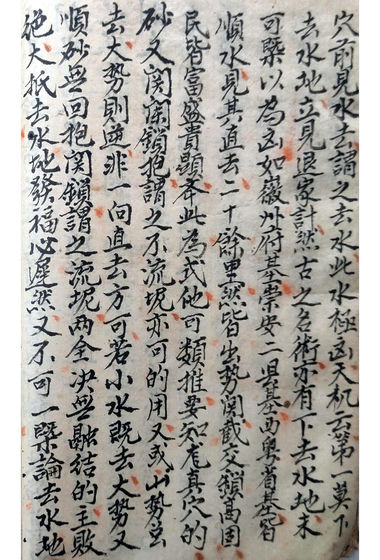 穴前見水去謂之去水此水極凶天机云第一莫下
去水地立見退家計然古之名術亦有下去水地未
可槩以為凶如徽州府基崇安二县基西粤省基皆
順水見其直去二十餘里然皆生勢関截交鎖高固
民皆富盛貴顯此為式他可類推要知龙真穴的
砂又関鎖抱謂之不流坭亦可的用又或山勢虽
去大勢則逆非一向直去方可若小水既去大势又
順砂無回抱関鎖謂之流坭两全决無融結的主敗
绝大抵去水地發福心遲然又不可一槩論去水地